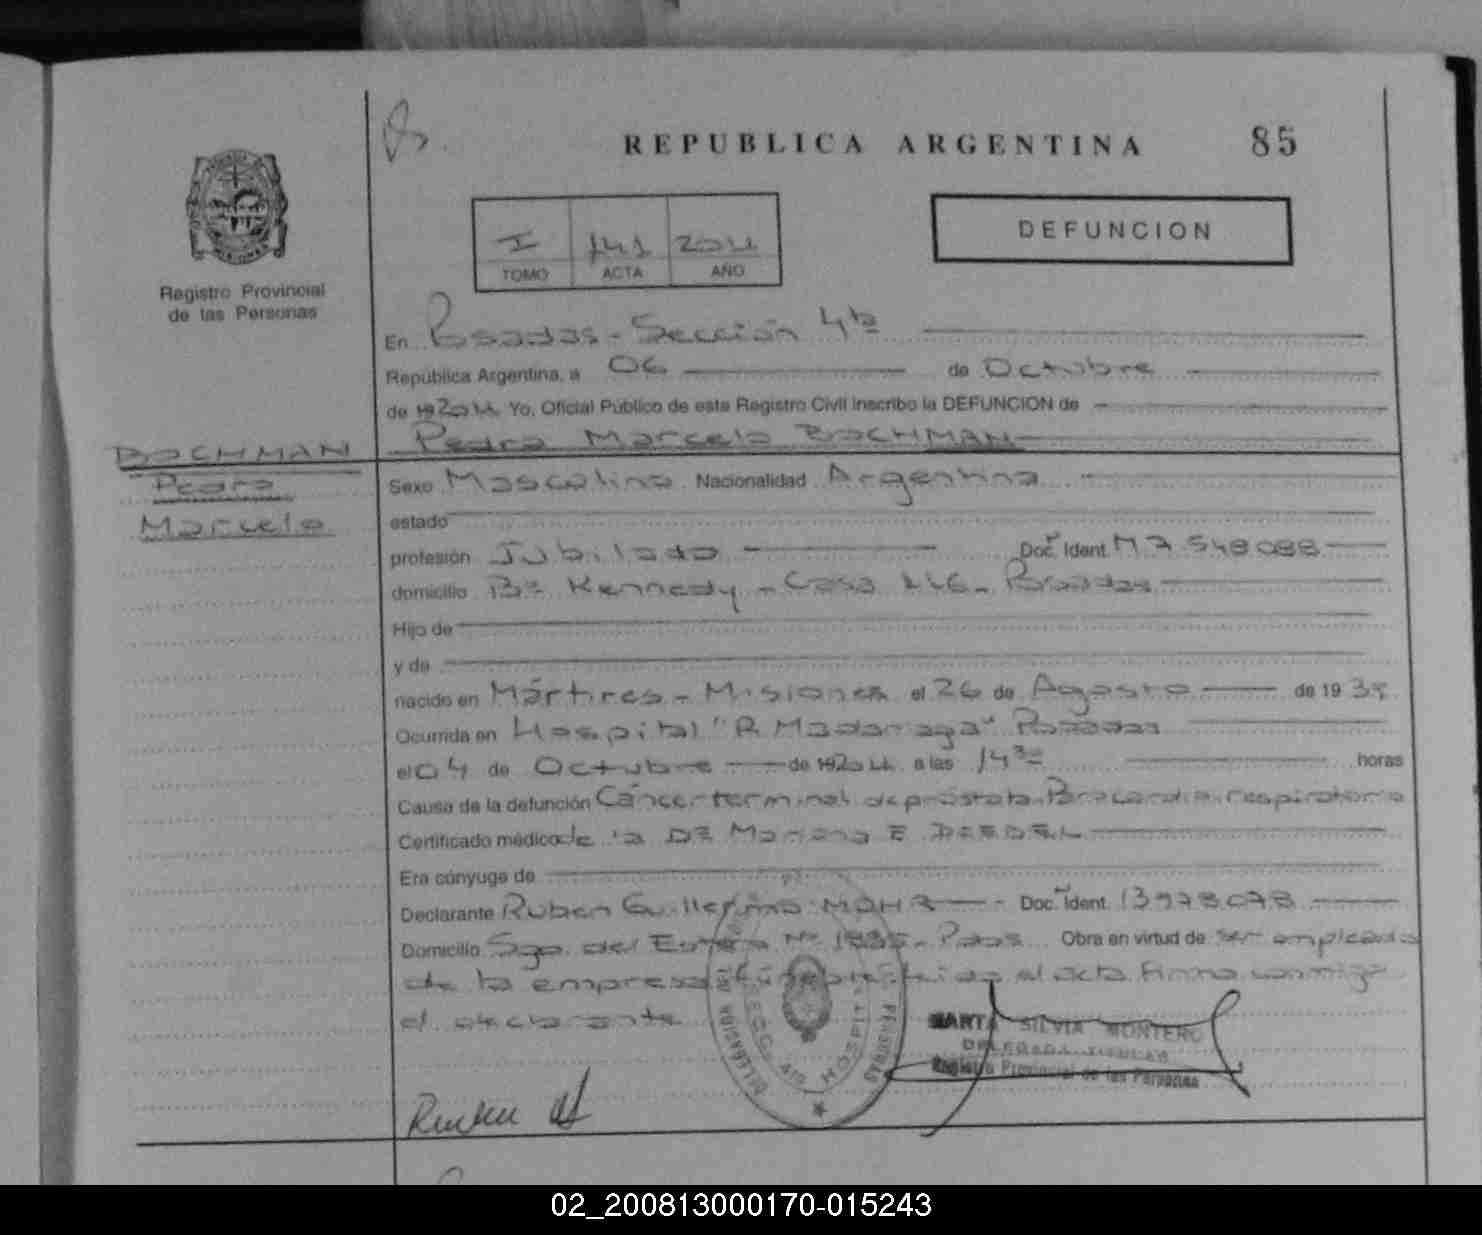 REPUBLICA ARGENTINA 85
DEFUNCION
I 141 2011
TOMO ACTA AÑO
Registro Provincial
de las Personas
En Posadas - Sección 4ta
República Argentina, a 06 de Octubre
de 19 2011 Yo, Oficial Público de este Registro Civil inscribo la DEFUNCION de
BACHMAN Pedro Marcelo BACHMAN
Pedro Sexo Masculino Nacionalidad Argentina
Marcelo estado
profesión Jubilado Doc. Ident. M 7.548088
domicilio Bº Kennedy - Casa - Posadas
Hijo de
y de
nacido en Mártires - Misiones el 26 de Agosto de 19
Ocurrida en Hospital "R. Madariaga" Posadas
el 04 de Octubre de 19 2011 a las 14 30 horas
Causa de la defunción Cáncer terminal de próstata. Paro cardio respiratorio
Certificado médico de la Mariana E.
Era cónyuge de
Declarante Ruben Guillermo MOHR Doc. Ident. 13973073
Domicilio Sgo. del Estero Nº Pdas. Obra en virtud de ser empleado
de la empresa fúnebre, leída el acta firma conmigo
el declarante
MARTA SILVIA MONTERO
DELEGADA TITULAR
Registro Provincial de las Personas
DELEGACION
SECC. 4ta HOSPITAL
PERSONAS
Ruben
02_200813000170-015243